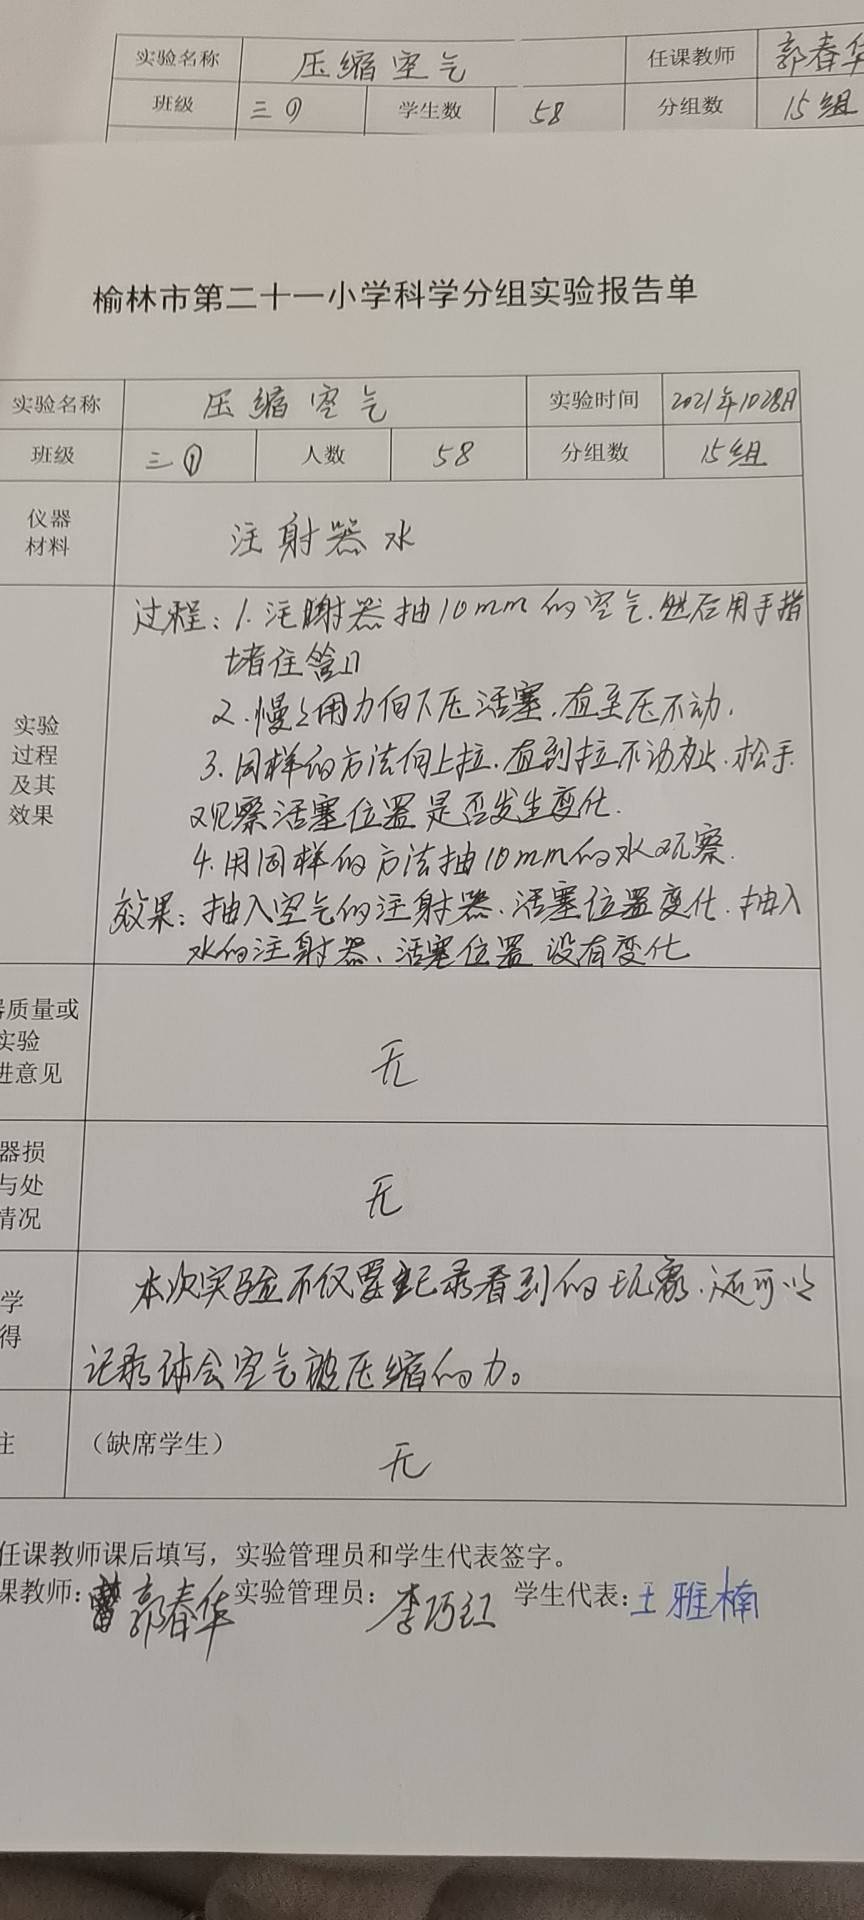 实验名称 压缩空气 任课教师 郭春华
班级 三① 学生数 58 分组数 15组
榆林市第二十一小学科学分组实验报告单
实验名称 压缩空气 实验时间 2021年1028日
班级 三① 人数 58 分组数 15组
仪器
材料
注射器水
实验
过程
及其
效果
过程：1.注射器抽10mm的空气.然后用手指
堵住管口
2.慢々用力向下压活塞.直至压不动.
3.同样的方法向上拉.直到拉不动为止.松手.
观察活塞位置是否发生变化.
4.用同样的方法抽10mm的水观察.
效果：抽入空气的注射器、活塞位置变化.抽入
水的注射器、活塞位置没有变化
器质量或
实验
进意见
无
器损
与处
情况
无
学
得
本次实验不仅要记录看到的现象.还可以
记录体会空气被压缩的力。
注 （缺席学生） 无
任课教师课后填写，实验管理员和学生代表签字。
课教师：郭春华 实验管理员：李巧红 学生代表：王雅楠